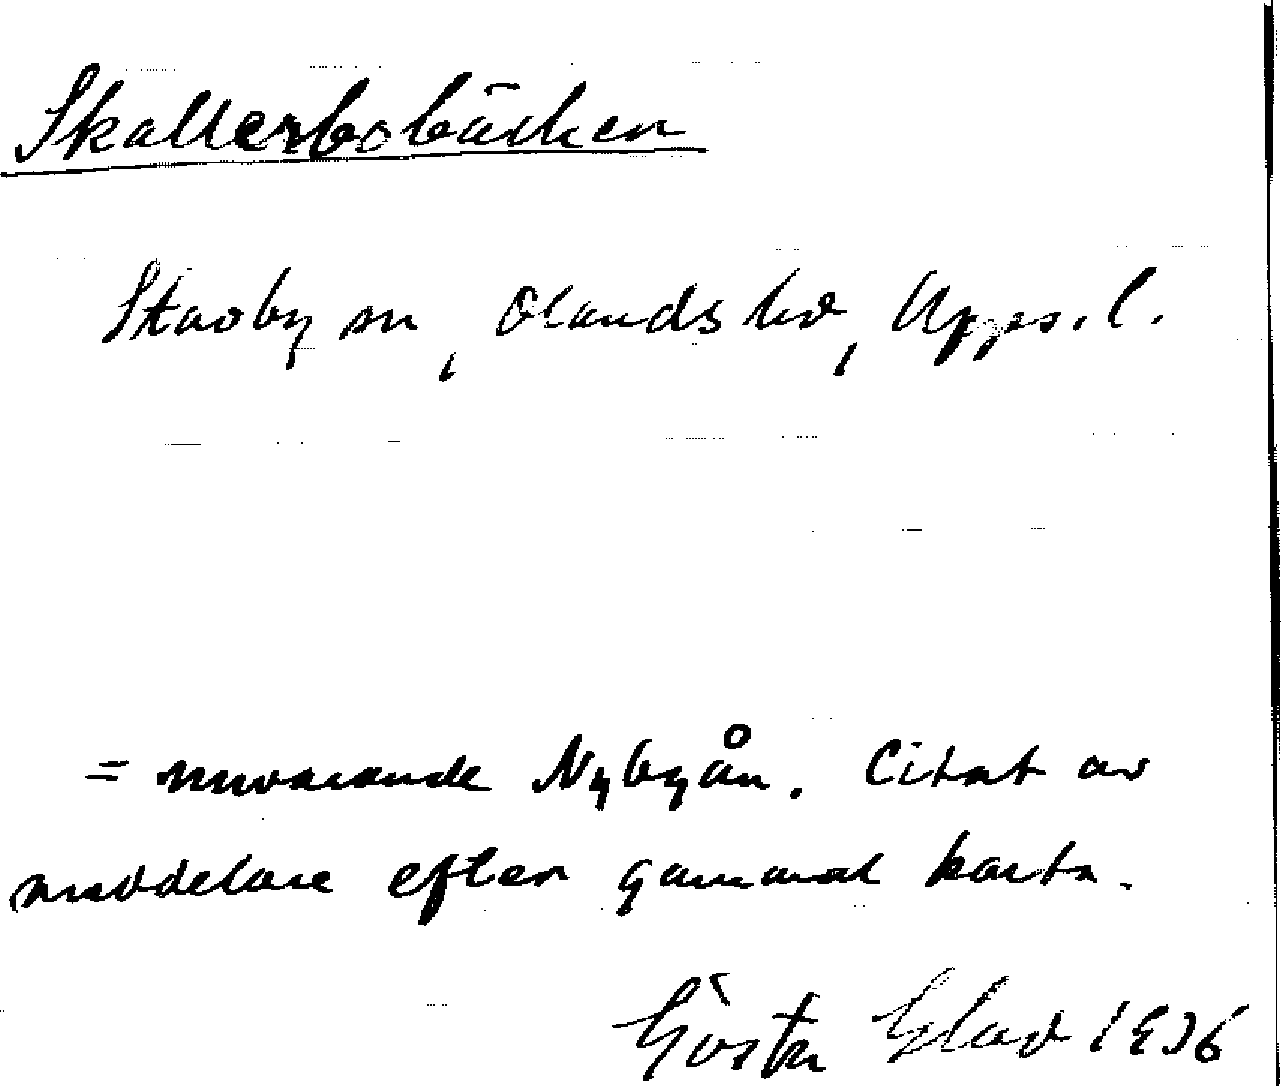 Skallerbobäcken
Stavby sn, Olands hd, Upps. l.
= nuvarande Nybyån. Citat av
meddelare efter gammal karta.
Gösta Glad 1936